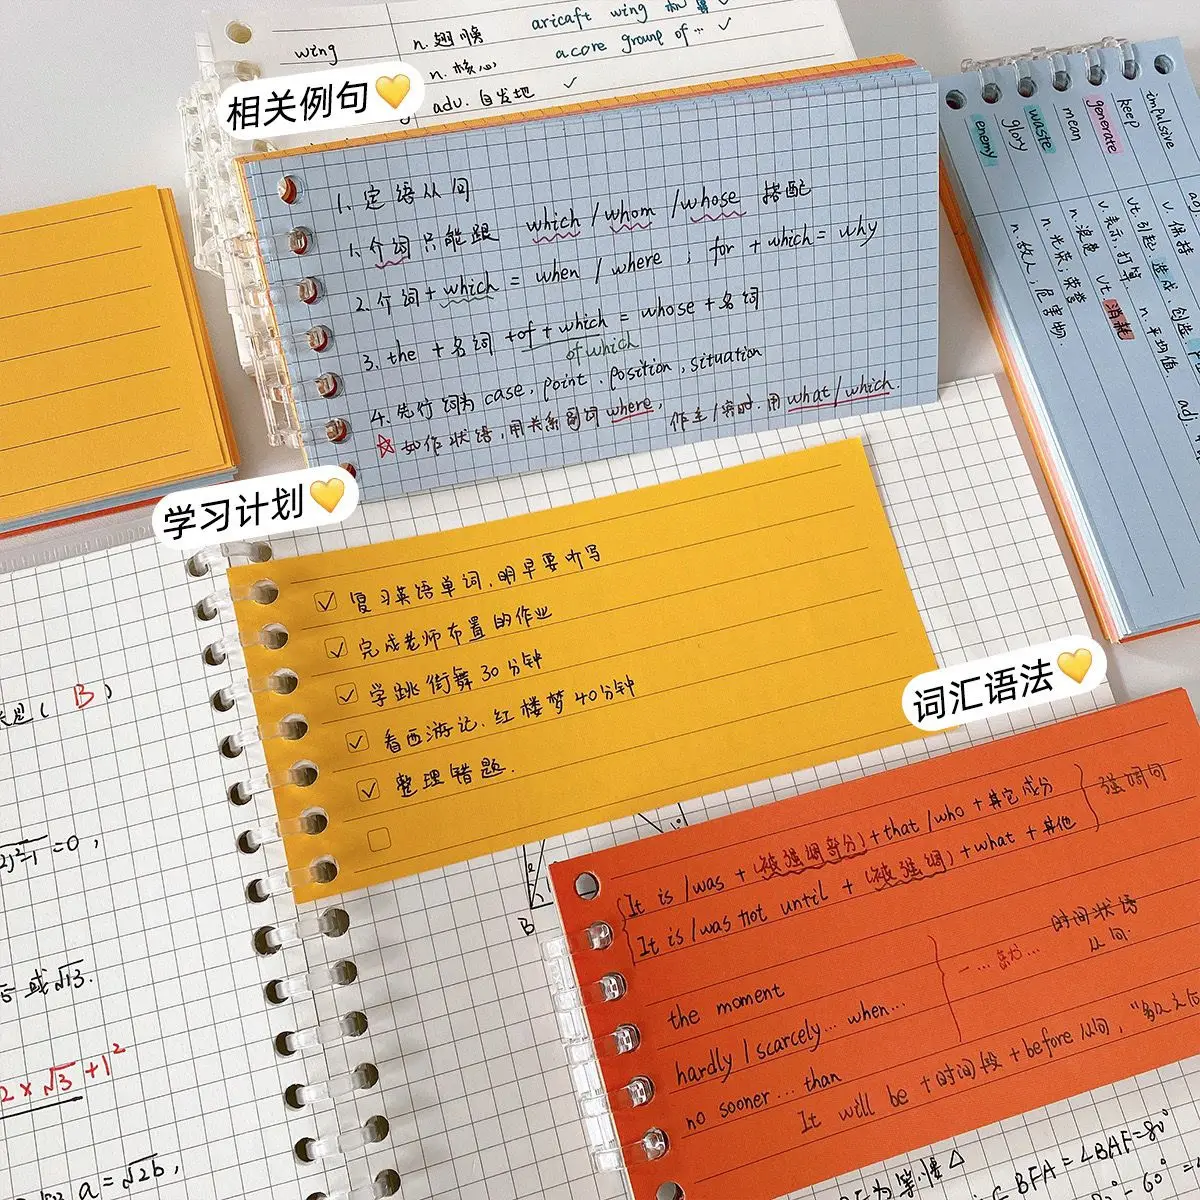 wing
n. 翅膀
aricaft wing 机翼 ✓
n. 核心
a core group of… ✓
adv. 自发地 ✓
相关例句💛
1、定语从句
1、介词只能跟 which / whom / whose 搭配
2. 介词 + which = when / where ; for + which = why
3. the + 名词 + of + which = whose + 名词
of which
4. 先行词为 case, point, position, situation
☆ 如作状语,用关系副词 where, 作主/宾时,用 what/which.
impulsive
keep v. 保持
generate vt. 引起, 造成、创造
mean v. 表示, 打算 n. 平均值. adj.
waste n. 浪费 vt. 消耗
glory n. 光荣; 荣誉
enemy n. 敌人, 危害物.
学习计划💛
☑ 复习英语单词,明早要听写
☑ 完成老师布置的作业
☑ 学跳街舞 30 分钟
☑ 看西游记、红楼梦 40分钟
☑ 整理错题.
词汇语法💛
It is /was + (被强调部分) + that /who + 其它成分
It is /was not until + (被强调) + what + 其他
强调句
the moment
hardly / scarcely… when…
no sooner … than
一…就…
时间状语
从句.
It will be + 时间段 + before 从句, "多久之后
( B )
=0 ,
或√13.
2 × √3 + 1²
a = √2b,
B
∠BAF=80°
BFA =
=60°